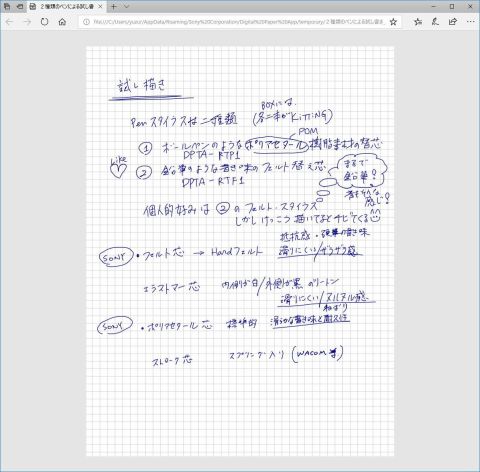 2 種類のペンによる試し書き
file:///C:/Users/yuzur/AppData/Roaming/Sony%20Corporation/Digital%20Paper%20App/temporary/2 種類のペンによる試し書き
試し描き
Penスタイラスは二種類
BOXには
(各二本がKITTING)
POM
① ボールペンのようなポリアセタール樹脂素材の替芯
DPTA-RTP1
Like
② 鉛筆のような書き味のフェルト替え芯
DPTA-RTF1
まるで
鉛筆!
書きやすいな
感じ!
個人的好みは②のフェルト・スタイラス
しかしけっこう描いてるとチビてくる
抵抗感・鉛筆の書き味
SONY ・フェルト芯 → Handフェルト 滑りにくい/ザラザラ感
エラストマー芯 内側が白/外側が黒のツートン
滑りにくい/ヌルヌル感
粘ばり
SONY ・ポリアセタール芯 標準的 滑らかな書き味と
ストローク芯 スプリング入り (WACOM等)